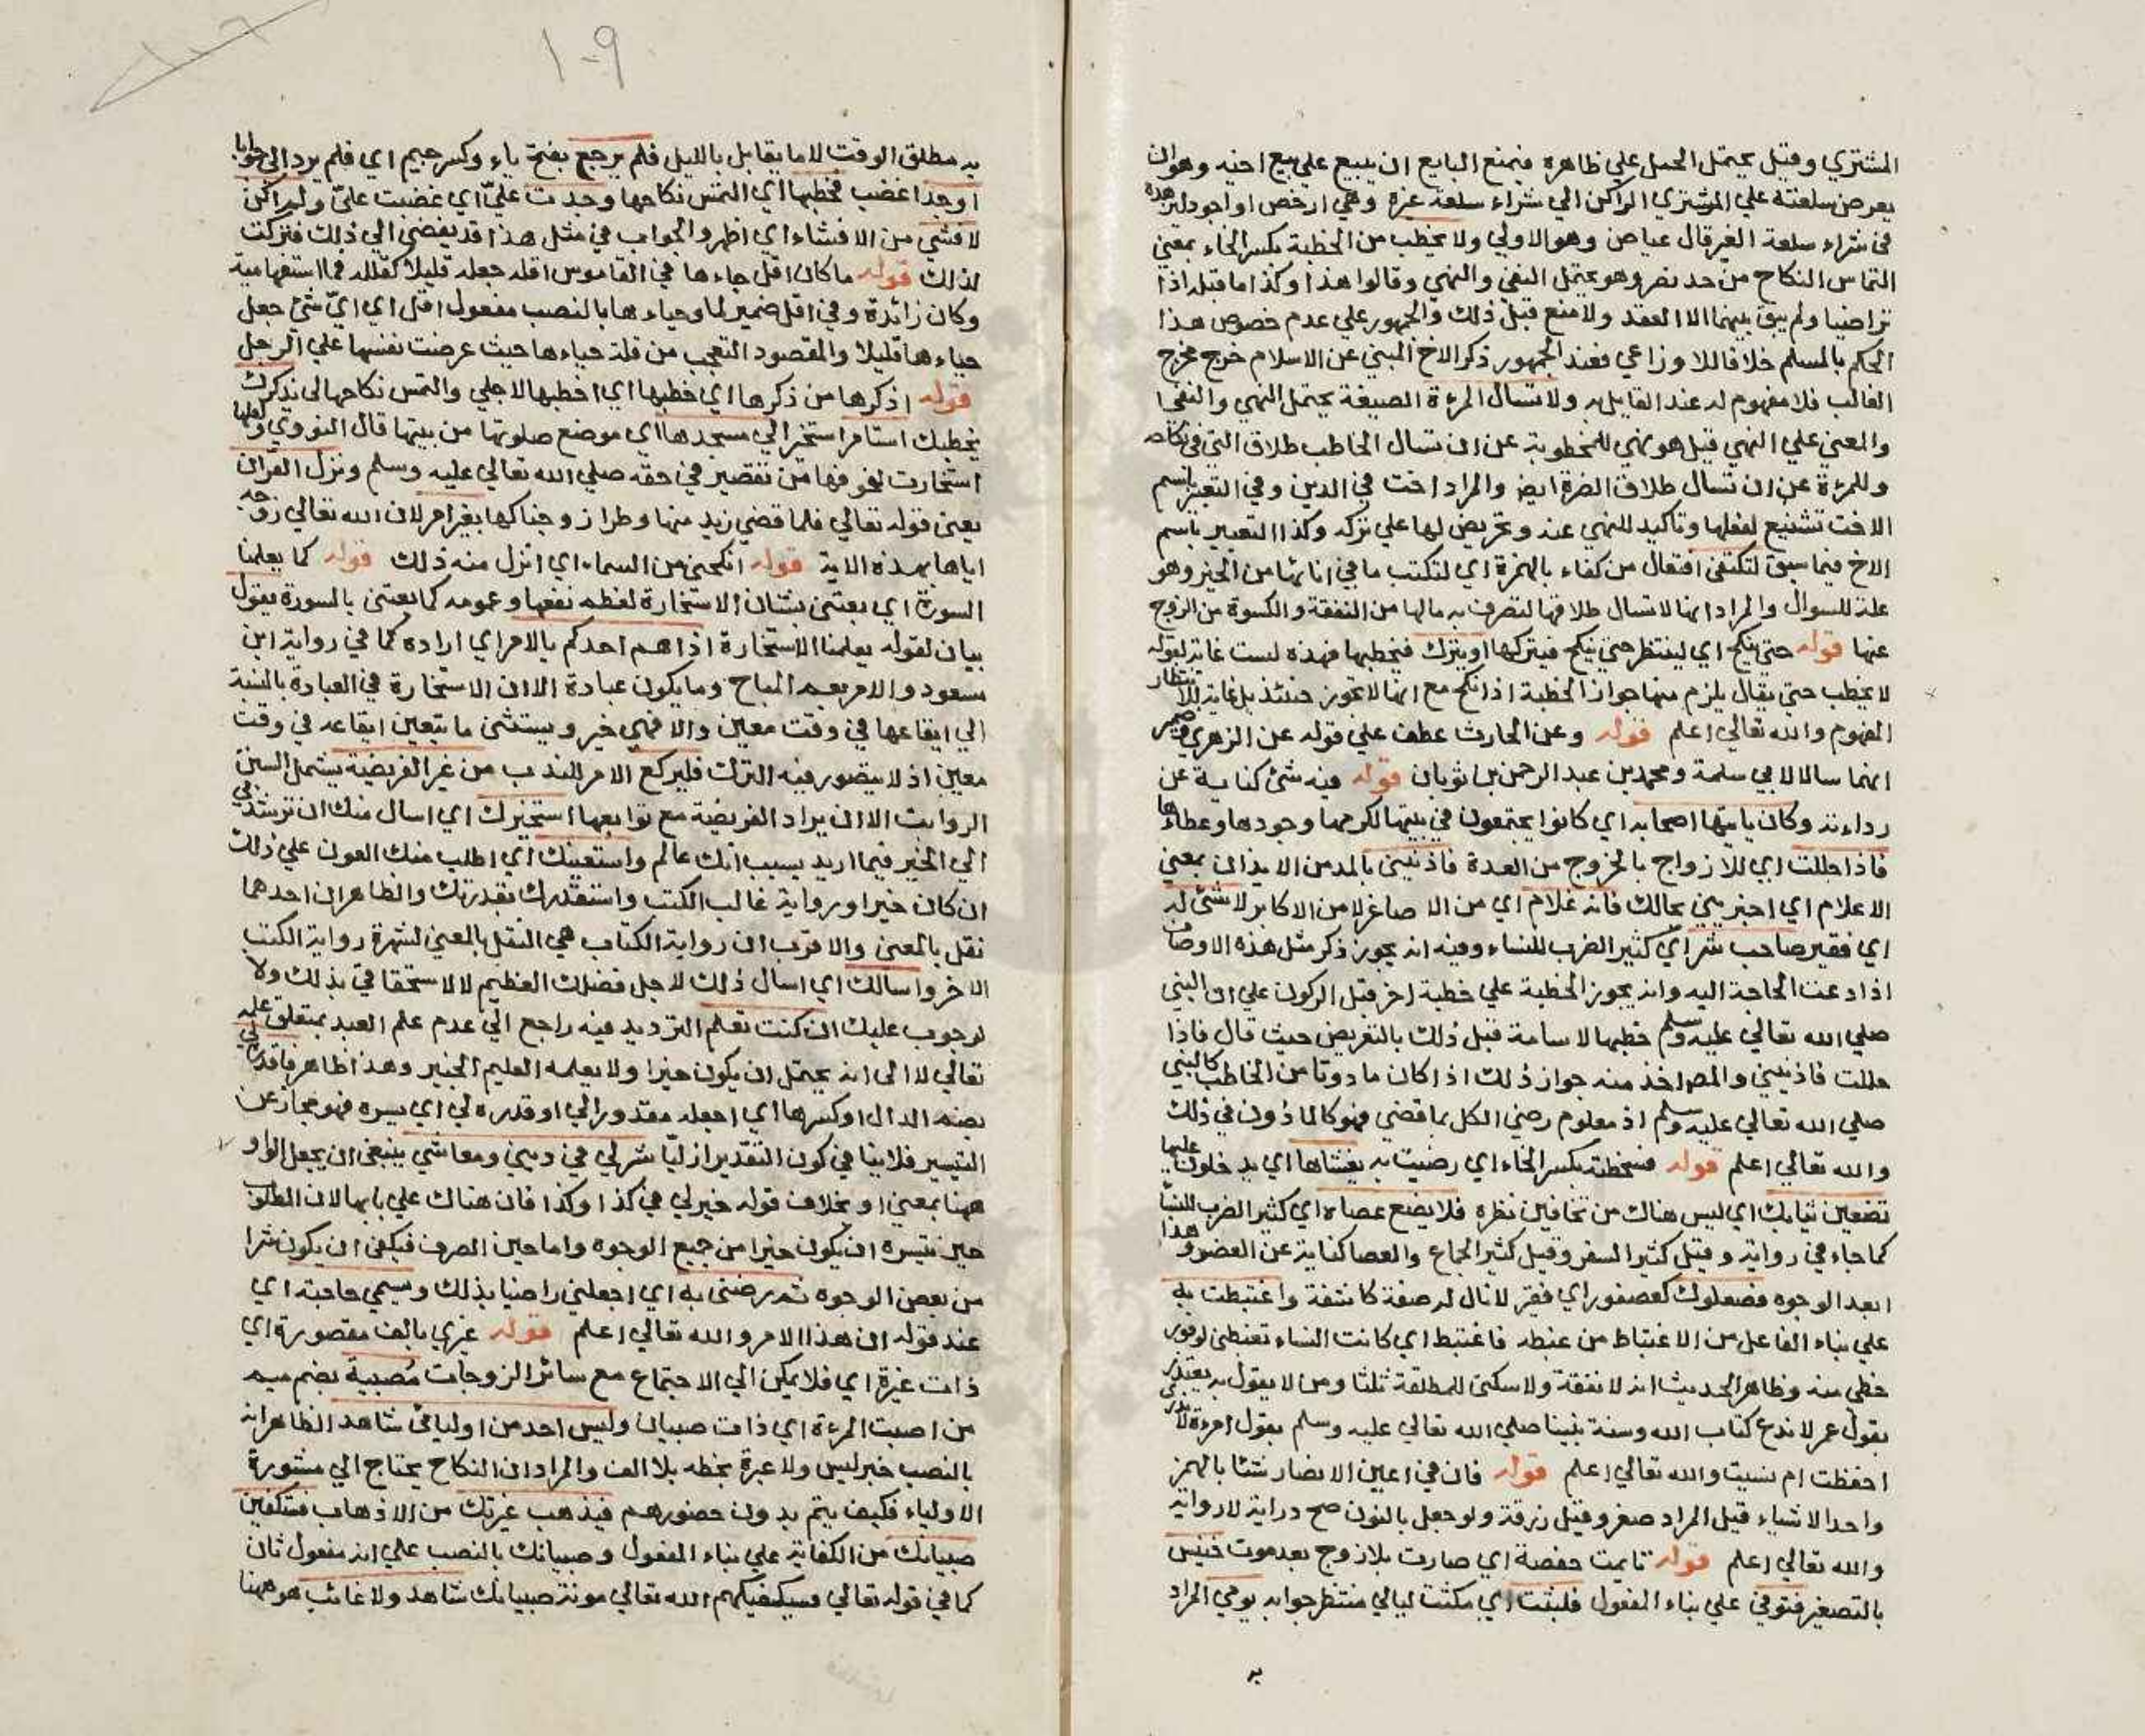 المشتري وقيل يحتمل الحمل على ظاهره فيمنع البايع ان يبيع علي بيع اخيه وهو ان
يعرض سلعته علي المشتري الراكن الي شراء سلعة غيره وهي ارخص او اجود ليزهده
في شراء سلعة الغير قال عياض وهو الاولي ولا يخطب من الخطبة بكسر الخاء بمعني
التماس النكاح من حد نصر وهو يحتمل النفي والنهي وقالوا هذا وكذا ما قبله اذا
تراضيا ولم يبق بينهما الا العقد ولا منع قبل ذلك والجمهور علي عدم خصوص هذا
الحكم بالمسلم خلافا للاوزاعي فعند الجمهور ذكر الاخ المبني عن الاسلام خرج مخرج
الغالب فلا مفهوم له عند القايل به ولا تسال المرءة الصيغة يحتمل النهي والنفي
والمعني علي النهي قيل هو نهي للمخطوبة عن ان تسال الخاطب طلاق التي في نكاحه
وللمرءة عن ان تسال طلاق الضرة ايض والمراد اخت في الدين وفي التعبير باسم
الاخت تشنيع لفعلها وتاكيد للنهي عنه وتحريض لها علي تركه وكذا التعبير باسم
الاخ فيما سبق لتكتفئ افتعال من كفاء بالهمزة اي لتكتب ما في انائها من الخير وهو
علة للسوال والمراد انها لا تسال طلاقها لتصرف به مالها من النفقة والكسوة من الزوج
عنها قوله حتي ينكح اي لينتظر حتي ينكح فيتركها او يترك فيخطبها فهذه ليست غاية لقوله
لا يخطب حتي يقال يلزم منها جواز الخطبة اذا نكح مع انها لا تجوز حينئذ بل غاية للانتظار
المفهوم والله تعالي اعلم قوله وعن الحارث عطف علي قوله عن الزهري
انهما سالا لابي سلمة ومحمد بن عبد الرحمن بن ثوبان قوله فيه شئ كناية عن
رداءته وكان ياتيها اصحابه اي كانوا يجتمعون في بيتها لكرمها وجودها وعطاءها
فاذا حللت اي للازواج بالخروج من العدة فاذنيني بالمد من الايذان بمعني
الاعلام اي اخبريني بحالك فانه غلام اي من الاصاغر لا من الاكابر لا شئ له
اي فقير صاحب شر اي كثير الضرب للنساء وفيه انه يجوز ذكر مثل هذه الاوصاف
اذا دعت الحاجة اليه وانه يجوز الخطبة علي خطبة اخر قبل الركون علي ان النبي
صلي الله تعالي عليه وسلم خطبها لاسامة قبل ذلك بالتعريض حيث قال فاذا
حللت فاذنيني والمص اخذ منه جواز ذلك اذا كان ماذونا من الخاطب كالنبي
صلي الله تعالي عليه وسلم اذ معلوم رضي الكل بما قضي فهو كالماذون في ذلك
والله تعالي اعلم قوله فسخطته بكسر الخاء اي رضيت به يغشاها اي يدخلون عليها
تضعين ثيابك اي ليس هناك من تخافين نظره فلا يضع عصاه اي كثير الضرب للنساء
كما جاء في رواية وقيل كثير السفر وقيل كثير الجماع والعصا كناية عن العضو وهذا
ابعد الوجوه فصعلوك كعصفور اي فقير لا مال له صفة كاشفة واغتبطت به
علي بناء الفاعل من الاغتباط من غبطه فاغتبط اي كانت النساء تغبطني لوفور
حظي منه وظاهر الحديث انه لا نفقة ولا سكني للمطلقة ثلثا ومن لا يقول به يعتذر
بقول عمر لا ندع كتاب الله وسنة نبينا صلي الله تعالي عليه وسلم بقول امرءة لا ندري
احفظت ام نسيت والله تعالي اعلم قوله فان في اعين الانصار شئا بالهمز
واحد الاشياء قيل المراد صغر وقيل زرقة ولو جعل بالنون صح دراية لا رواية
والله تعالي اعلم قوله تايمت حفصة اي صارت بلا زوج بعد موت خنيس
بالتصغير فتوفي علي بناء المفعول فلبثت اي مكثت ليالي منتظر جوابه يومي المراد
به
١٠٩
به مطلق الوقت لا ما يقابل بالليل فلم يرجع بفتح ياء وكسر جيم اي فلم يرد الي جوابا
اوجد اغضب فخطبها اي التمس نكاحها وجدت عليّ اي غضبت عليّ ولم اكن
لافشي من الافشاء اي اظهر والجواب في مثل هذا قد يفضي الي ذلك فتركت
لذلك قوله ما كان اقل حياءها في القاموس اقله جعله قليلا كقلله فما استفهامية
وكان زائدة وفي اقل ضمير لما وحياءها بالنصب مفعول اقل اي ايّ شئ جعل
حياءها قليلا والمقصود التعجب من قلة حياءها حيث عرضت نفسها علي الرجل
قوله اذكرها من ذكرها اي خطبها اي اخطبها لاجلي والتمس نكاحها لي يذكرك
يخطبك استامر استخير الي مسجدها اي موضع صلوتها من بيتها قال النووي ولعلها
استخارت لخوفها من تقصير في حقه صلي الله تعالي عليه وسلم ونزل القران
يعني قوله تعالي فلما قضي زيد منها وطرا زوجناكها بغير امر لان الله تعالي زوجه
اياها بهذه الاية قوله انكحني من السماء اي انزل منه ذلك قوله كما يعلمنا
السورة اي يعتني بشان الاستخارة لعظم نفعها وعمومه كما يعتني بالسورة يقول
بيان لقوله يعلمنا الاستخارة اذا هم احدكم بالامر اي اراده كما في رواية ابن
مسعود والامر يعم المباح وما يكون عبادة الا ان الاستخارة في العبادة بالنسبة
الي ايقاعها في وقت معين والا فهي خير ويستثني ما يتعين ايقاعه في وقت
معين اذ لا يتصور فيه الترك فليركع الامر للندب من غير الفريضة يشمل السنن
الرواتب الا ان يراد الفريضة مع توابعها استخيرك اي اسال منك ان ترشدني
الي الخير فيما اريد بسبب انك عالم واستعينك اي اطلب منك العون علي ذلك
ان كان خيرا ورواية غالب الكتب واستقدرك بقدرتك والظاهر ان احدهما
نقل بالمعني والاقرب ان رواية الكتاب هي النقل بالمعني لشهرة رواية الكتب
الاخر واسالك اي اسال ذلك لاجل فضلك العظيم لا لاستحقاقي بذلك ولا
لوجوب عليك ان كنت تعلم الترديد فيه راجع الي عدم علم العبد بمتعلق علمه
تعالي لا الي انه يحتمل ان يكون خيرا ولا يعلمه العليم الخبير وهذا ظاهر فاقدره لي
بضم الدال او كسرها اي اجعله مقدورا لي او قدره لي اي يسره فهو مجاز عن
التيسير فلا ينافي كون التقدير ازليا شر لي في ديني ومعاشي ينبغي ان يجعل الواو
ههنا بمعني او بخلاف قوله خير لي في كذا وكذا فان هناك علي بابها لان المطلوب
حين تيسره ان يكون خيرا من جميع الوجوه واما حين الصرف فيكفي ان يكون شرا
من بعض الوجوه ثم رضني به اي اجعلني راضيا بذلك ويسمي حاجته اي
عند قوله ان هذا الامر والله تعالي اعلم قوله غيري بالف مقصورة اي
ذات غيرة اي فلا يمكن الي الاجتماع مع سائر الزوجات مُصبية بضم ميم
من اصبت المرءة اي ذات صبيان وليس احد من اوليائي شاهد الظاهر انه
بالنصب خبر ليس ولا عبرة بخطه بلا الف والمراد ان النكاح يحتاج الي مشورة
الاولياء فكيف يتم بدون حضورهم فيذهب غيرتك من الاذهاب فستكفين
صبيانك من الكفاية علي بناء المفعول وصبيانك بالنصب علي انه مفعول ثان
كما في قوله تعالي فسيكفيكهم الله تعالي مونة صبيانك شاهد ولا غائب هو ههنا